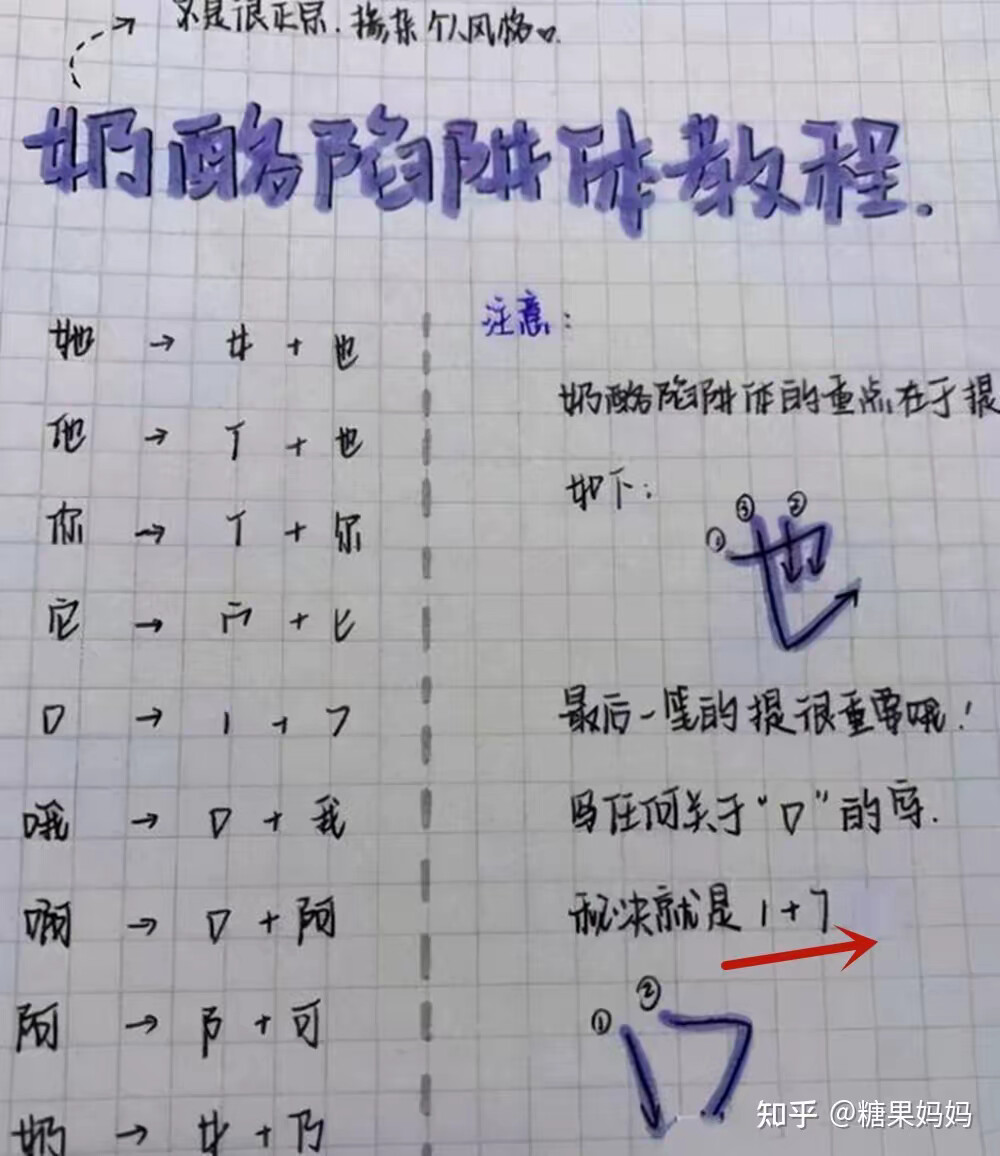 不是很正宗.掺杂个人风格
奶酪陷阱体教程.
她 → 女 + 也
他 → 亻 + 也
你 → 亻 + 尔
它 → 宀 + 匕
口 → 1 + 7
哦 → 口 + 我
啊 → 口 + 阿
阿 → 阝 + 可
奶 → 女 + 乃
注意:
奶酪陷阱体的重点在于提
如下:
① ③ ②
也
最后一笔的提很重要哦!
写任何关于“口”的字.
秘诀就是 1+7
① ②
口
知乎 @糖果妈妈